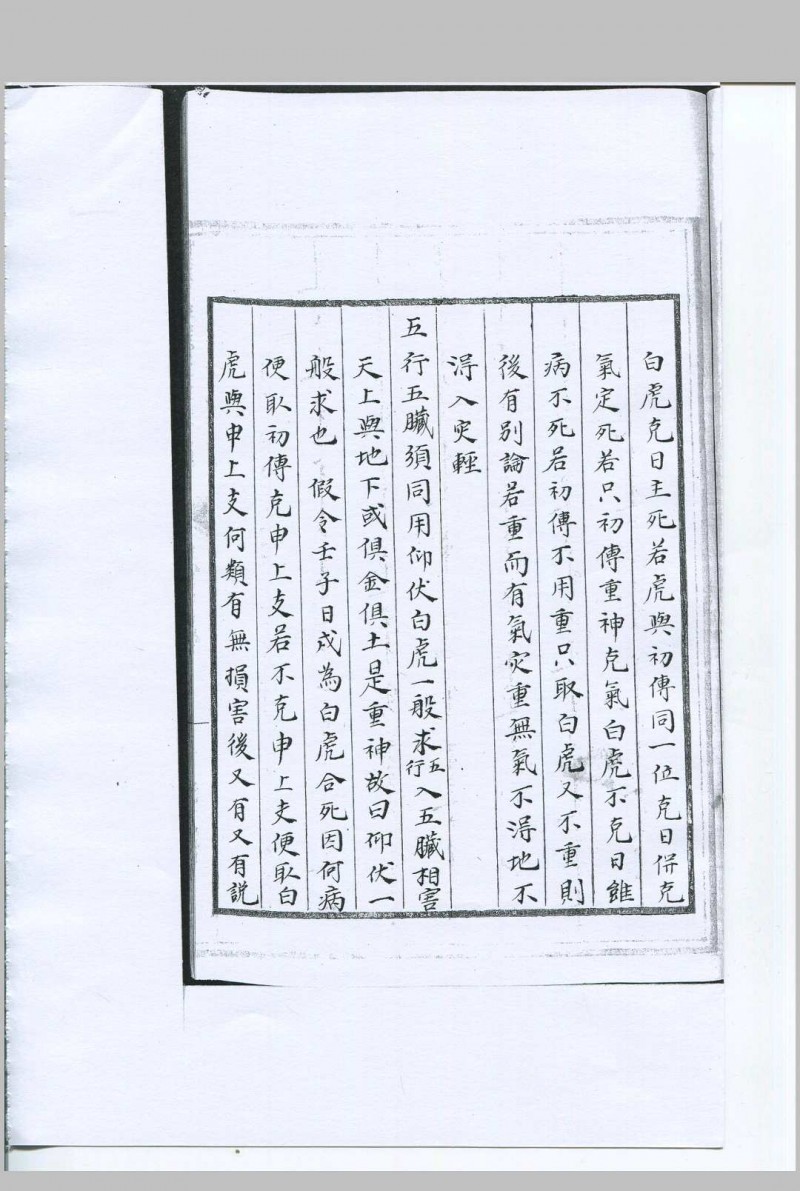 白虎克日主死若虎與初傳同一位克日併克
氣定死若只初傳重神克氣白虎不克日雖
病不死若初傳不用重只取白虎又不重則
後有別論若重而有氣灾重無氣不淂地不
淂入灾輕
五行五臟須同用仰伏白虎一般求五行入五臟相害
天上與地下或俱金俱土是重神故曰仰伏一
般求也 假令壬子日戌為白虎合死因何病
便取初傳克申上支若不克申上支便取白
虎與申上支何類有無損害後又有又有說